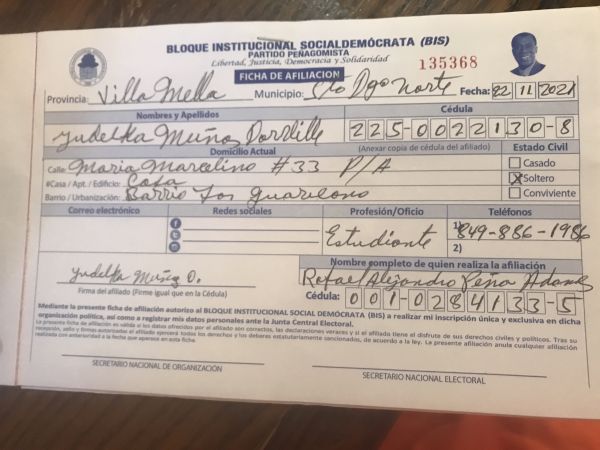 BLOQUE INSTITUCIONAL SOCIALDEMÓCRATA (BIS)
PARTIDO PEÑAGOMISTA
Libertad, Justicia, Democracia y Solidaridad
135368
FICHA DE AFILIACION
Provincia: Villa Mella Municipio: Sto Dgo Norte Fecha: 22 11 2021
Nombres y Apellidos Cédula
Yudelka Muñoz 225-0022130-8
Domicilio Actual (Anexar copia de cédula del afiliado) Estado Civil
Calle: Maria Marcelino # 33 P/A Casado
#Casa / Apt. / Edificio: Casa X Soltero
Barrio / Urbanización: Barrio Los Guaricano Conviviente
Correo electrónico Redes sociales Profesión/Oficio Teléfonos
Estudiante 1) 849-886-1986
2)
Nombre completo de quien realiza la afiliación
Yudelka Muñoz O. Rafael Alejandro Peña Adames
Firma del afiliado (Firme igual que en la Cédula) Cédula: 001-0284133-5
Mediante la presente ficha de afiliación autorizo al BLOQUE INSTITUCIONAL SOCIAL DEMÓCRATA (BIS) a realizar mi inscripción única y exclusiva en dicha
organización política, así como a registrar mis datos personales ante la Junta Central Electoral.
La presente ficha de afiliación es válida si los datos ofrecidos por el afiliado son correctos, las declaraciones veraces y si el afiliado tiene el disfrute de sus derechos civiles y políticos. Tras su
recepción, sello y firmas autorizadas el afiliado ejercerá todos los derechos y los deberes estatutariamente sancionados, de acuerdo a la ley. La presente afiliación anula cualquier afiliación
realizada con anterioridad a la fecha que aparece en esta ficha.
SECRETARIO NACIONAL DE ORGANIZACIÓN
SECRETARIO NACIONAL ELECTORAL